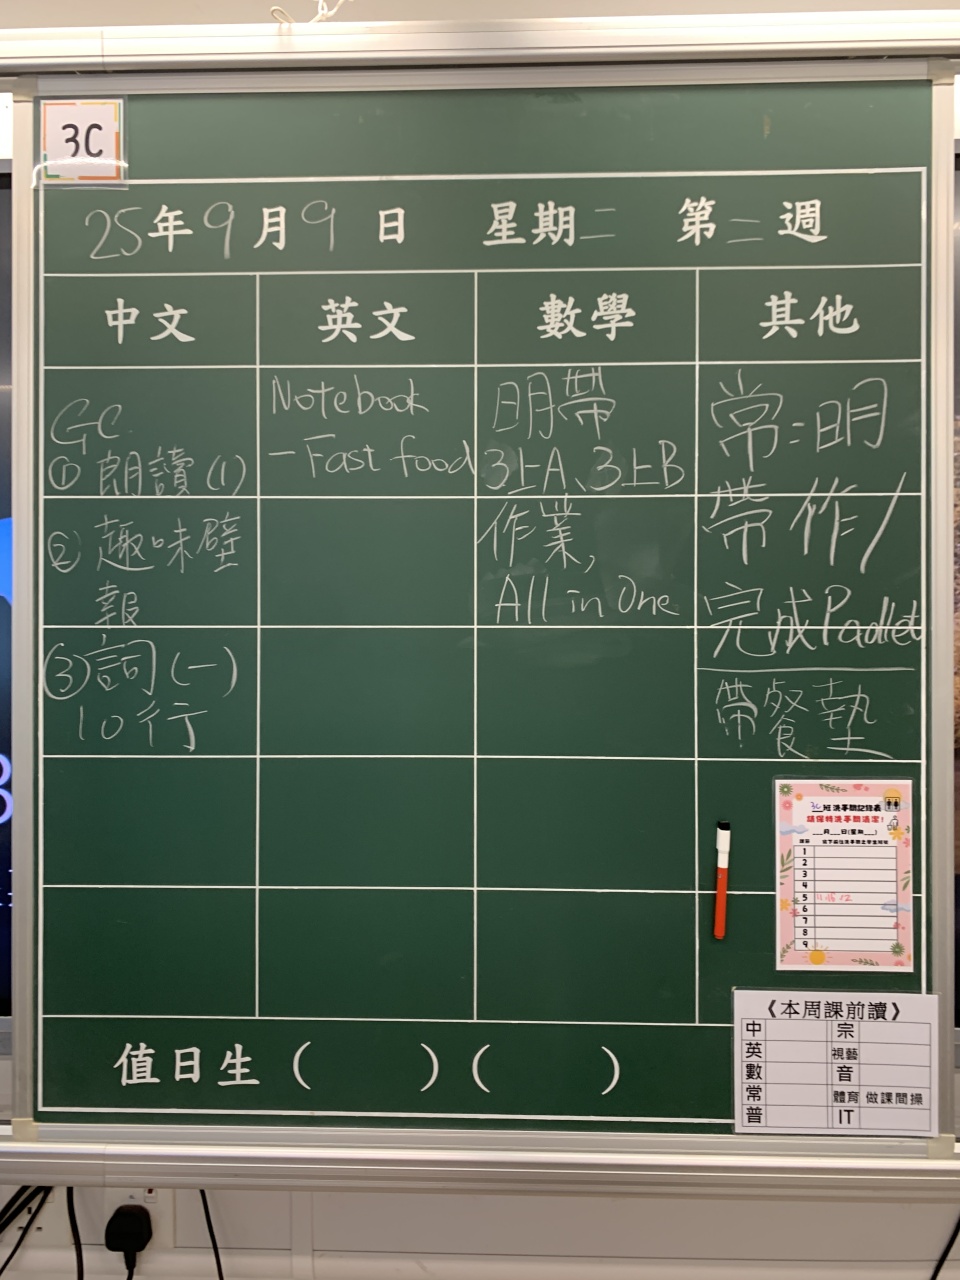 3C
25年9月9日 星期二 第二週
中文 英文 數學 其他
GC
① 朗讀(1)
② 趣味壁
報
③ 詞(一)
10行
Notebook
- Fast food
明帶
3上A、3上B
作業,
All in One
常:明
帶作/
完成Padlet
帶餐墊
3C班洗手間記錄表
請保持洗手間清潔!
__月__日(星期__)
1
2
3
4
5
6
7
8
9
值日生( )( )
《本周課前讀》
中 宗
英 視藝
數 音
常 體育 做課間操
普 IT